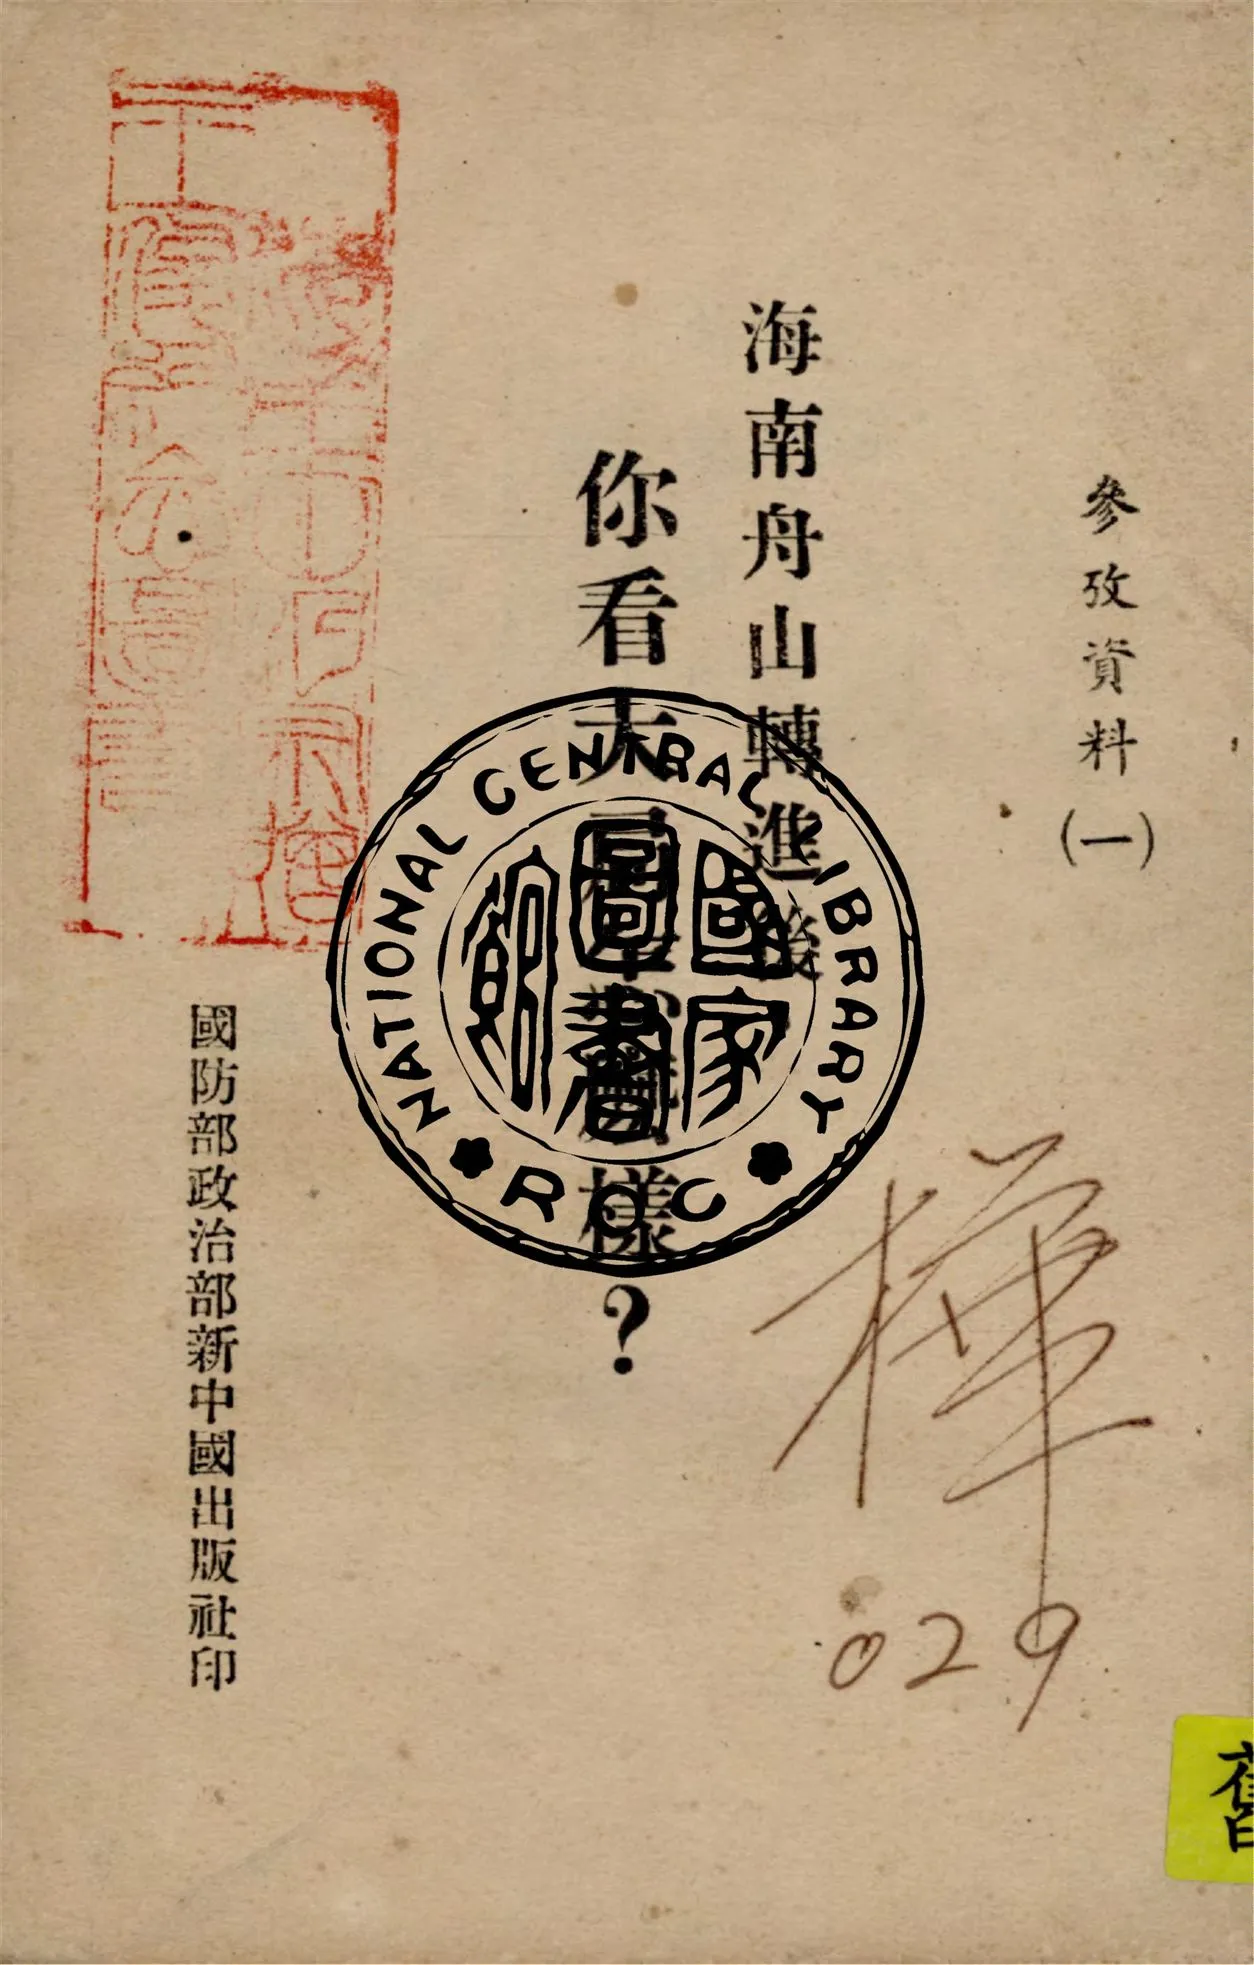 參攷資料(一)
海南舟山轉進後
你看大局怎麼樣?
國防部政治部新中國出版社印
NATIONAL CENTRAL LIBRARY
R.O.C
國家
圖書
館
樺
029
舊